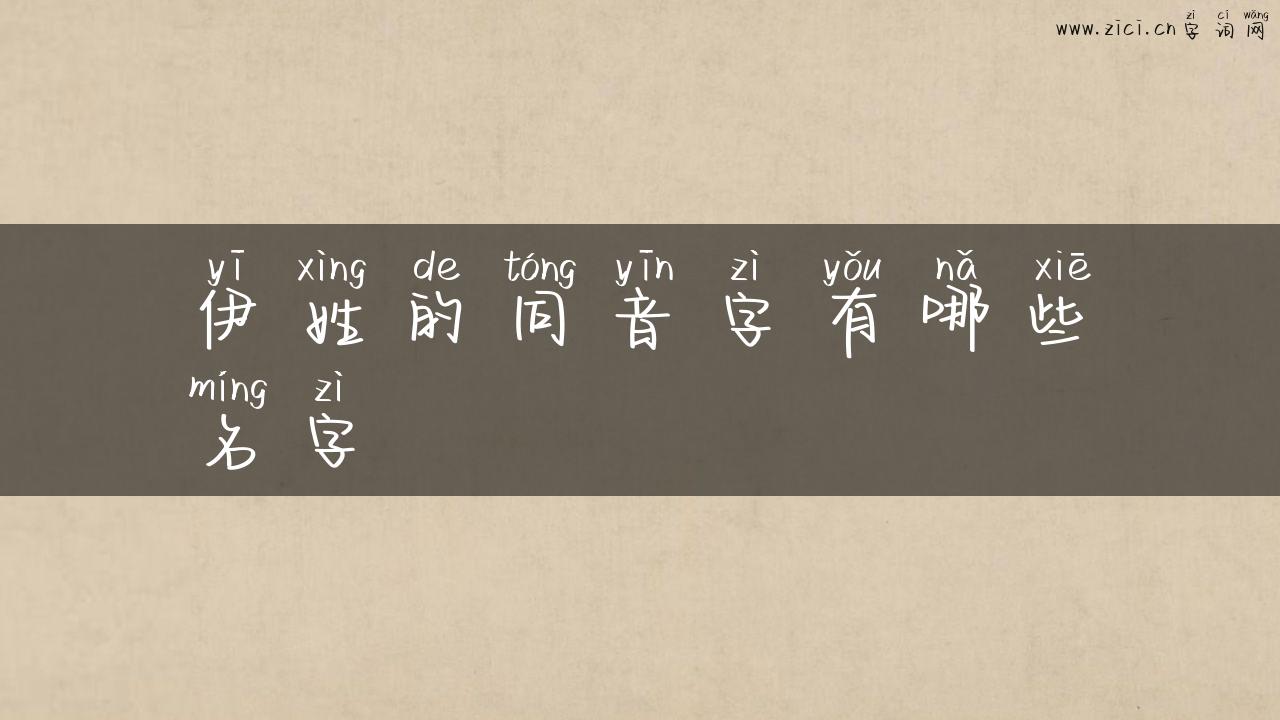 zì cí wǎng
www.zici.cn 字词网
yī xìng de tóng yīn zì yǒu nǎ xiē
伊姓的同音字有哪些
míng zì
名字